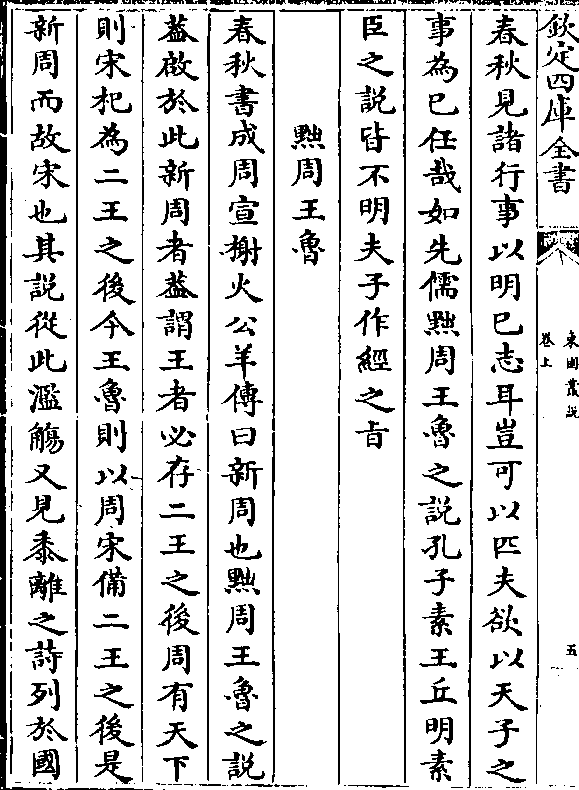 欽定四庫全書
東園叢説
卷上
五
春秋見諸行事以明已志耳豈可以匹夫欲以天子之
事為已任哉如先儒黜周王魯之説孔子素王丘明素
臣之説皆不明夫子作經之旨
黜周王魯
春秋書成周宣榭火公羊傳曰新周也黜周王魯之説
葢啟於此新周者葢謂王者必存二王之後周有天下
則宋杞為二王之後今王魯則以周宋備二王之後是
新周而故宋也其説從此濫觴又見黍離之詩列於國